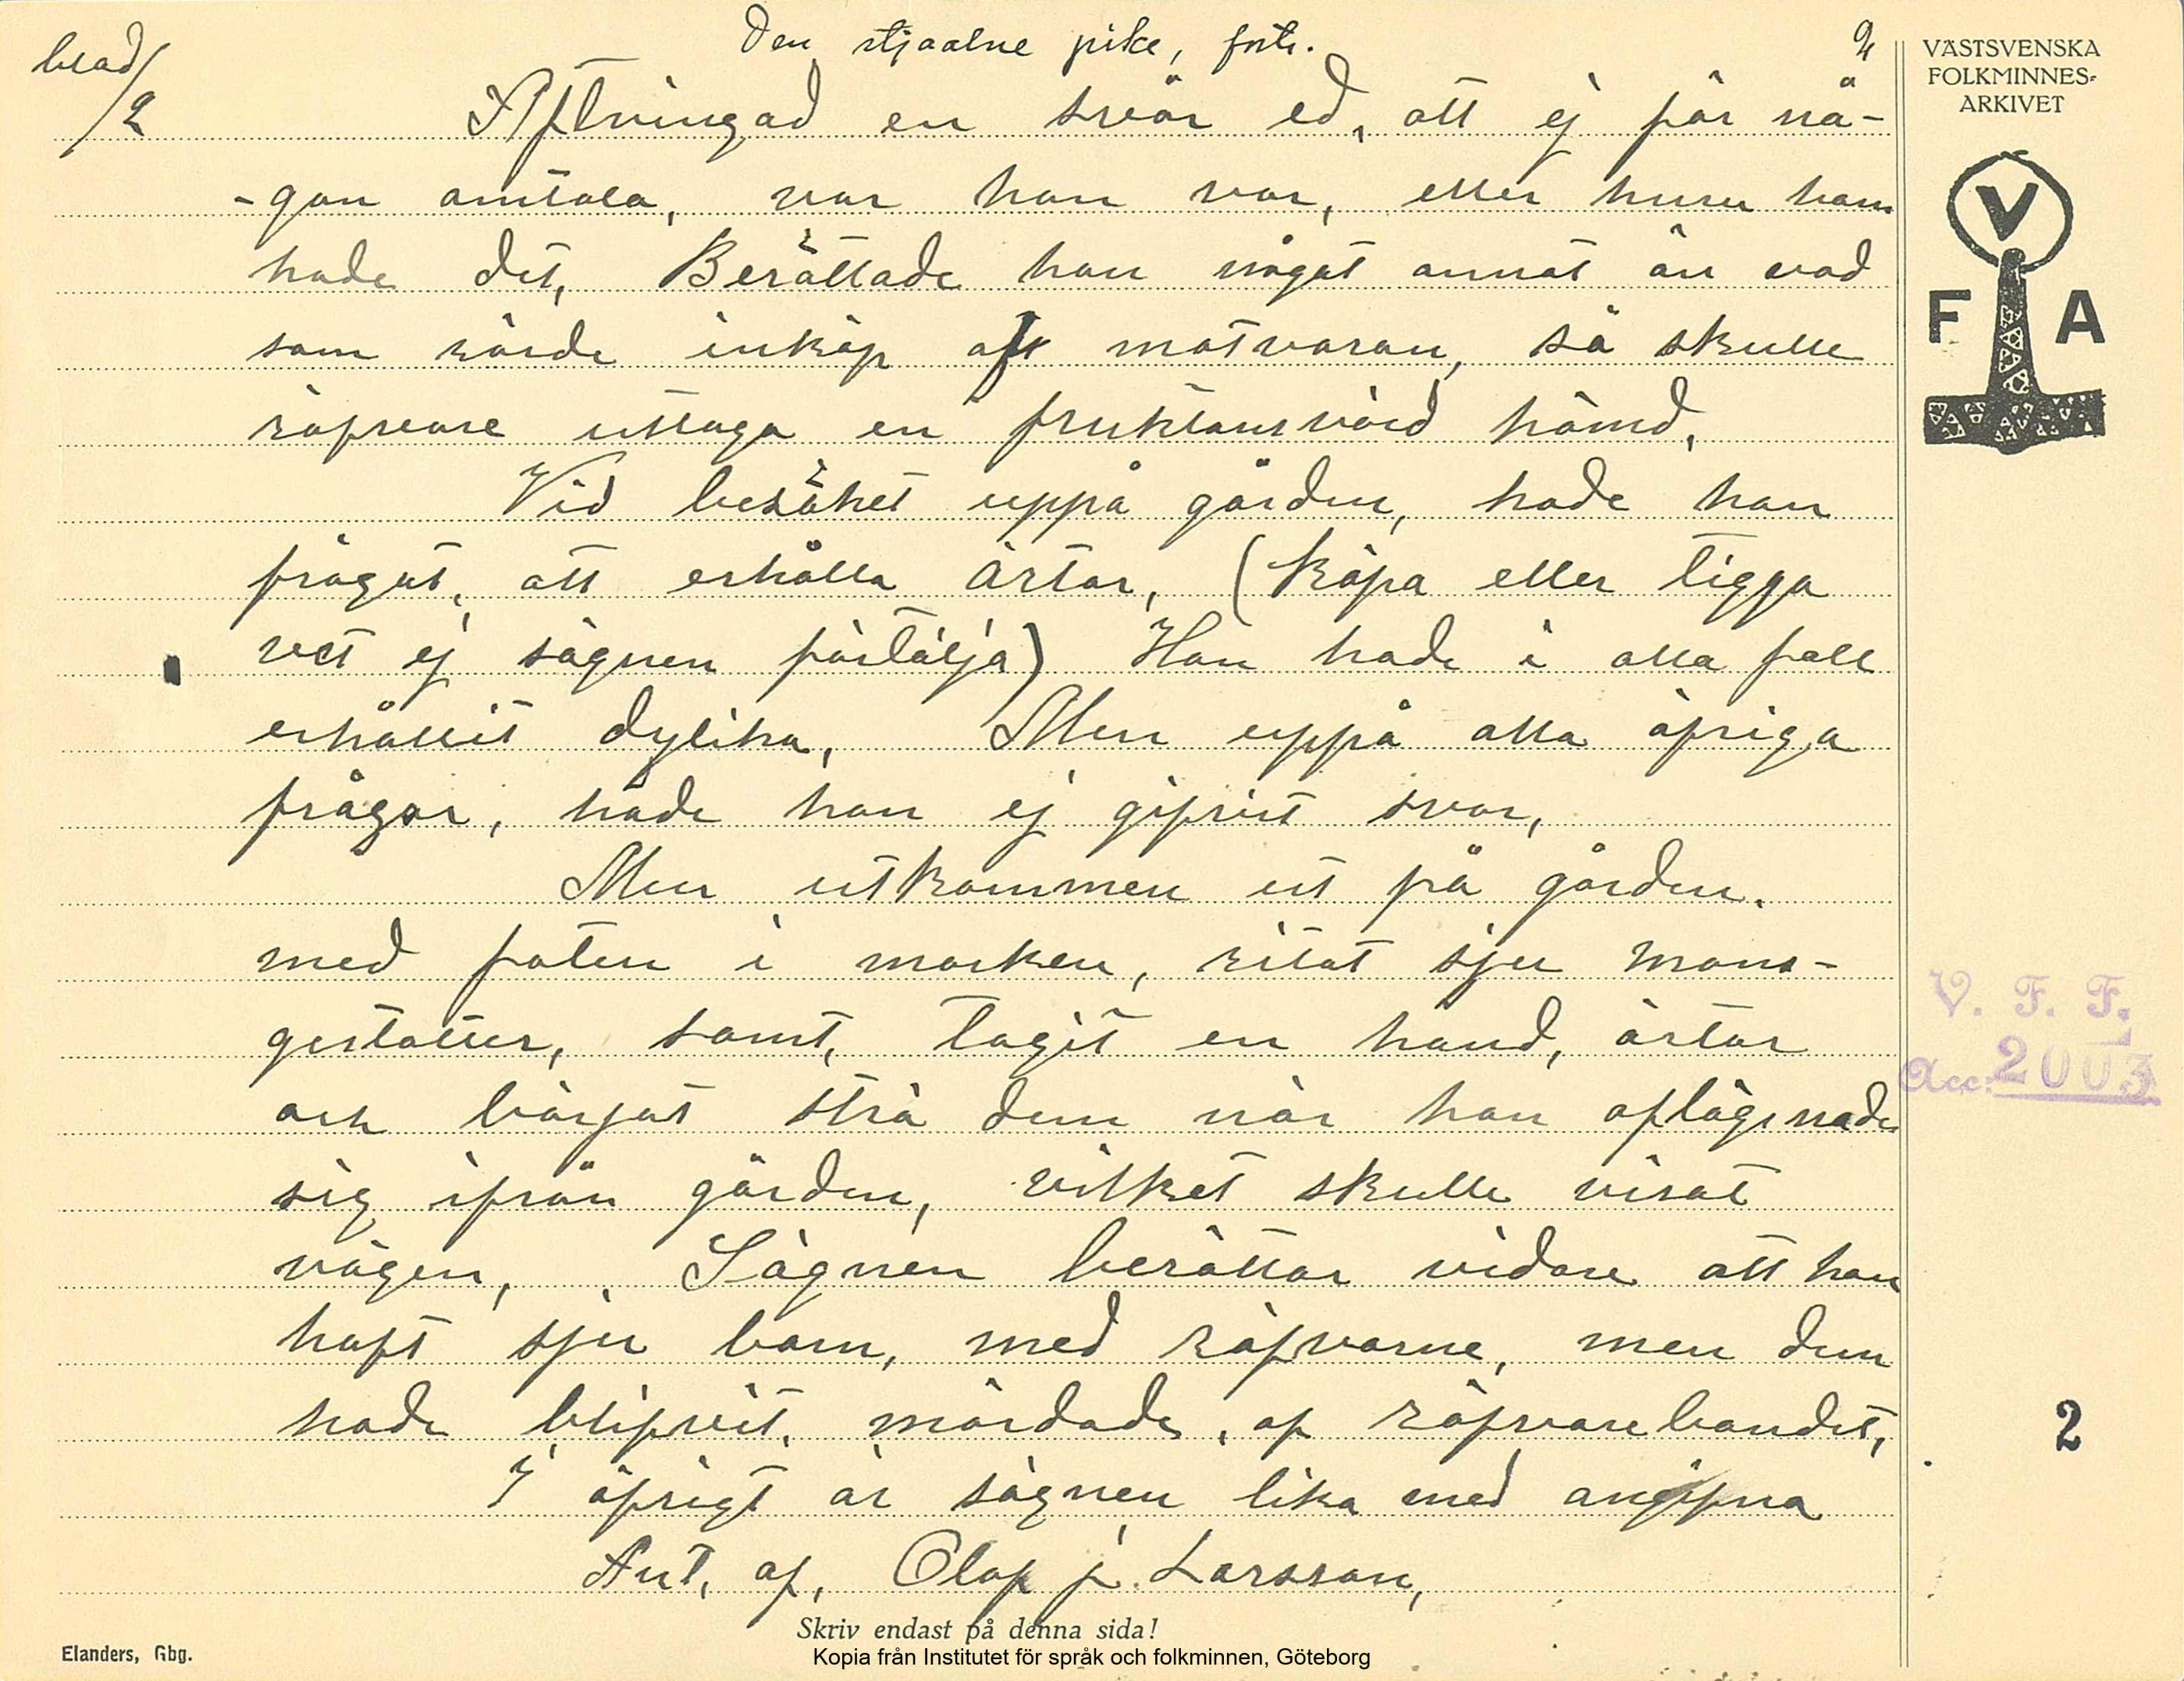 blad/2
Den stjaalne pike, forts.
2/
Aftvingad en svår ed, att ej för nå-
-gon omtala, var hon var, eller huru hon
hade det, Berättade hon något annat än vad
som rörde inköp af matvaran, så skulle
röfvare uttaga en fruktansvärd hämd,
Vid besöket uppå gården, hade hon
frågat, att erhålla ärtor, (köpa eller tigga
vet ej sägnen förtälja) Hon hade i alla fall
erhållit dylika, Men uppå alla öfriga
frågor, hade hon ej gifvit svar,
Men utkommen ut på gården.
med foten i marken, ritat sju mans-
gestalter, samt, tagit en hand, ärtor
och börjat strö dem när hon aflägsnade
sig ifrån gården, vilket skulle visat
vägen, Sägnen berättar vidare att hon
haft sju barn, med röfvarne, men dem
hade blifvit, mördade, af röfvarebandet,
I öfrigt är sägnen lika med angifna
Ant, af, Olof j. Larsson,
Skriv endast på denna sida!
Kopia från Institutet för språk och folkminnen, Göteborg
Elanders, Gbg.
VÄSTSVENSKA
FOLKMINNES-
ARKIVET
V
F A
V. F. F.
Acc: 2003
2